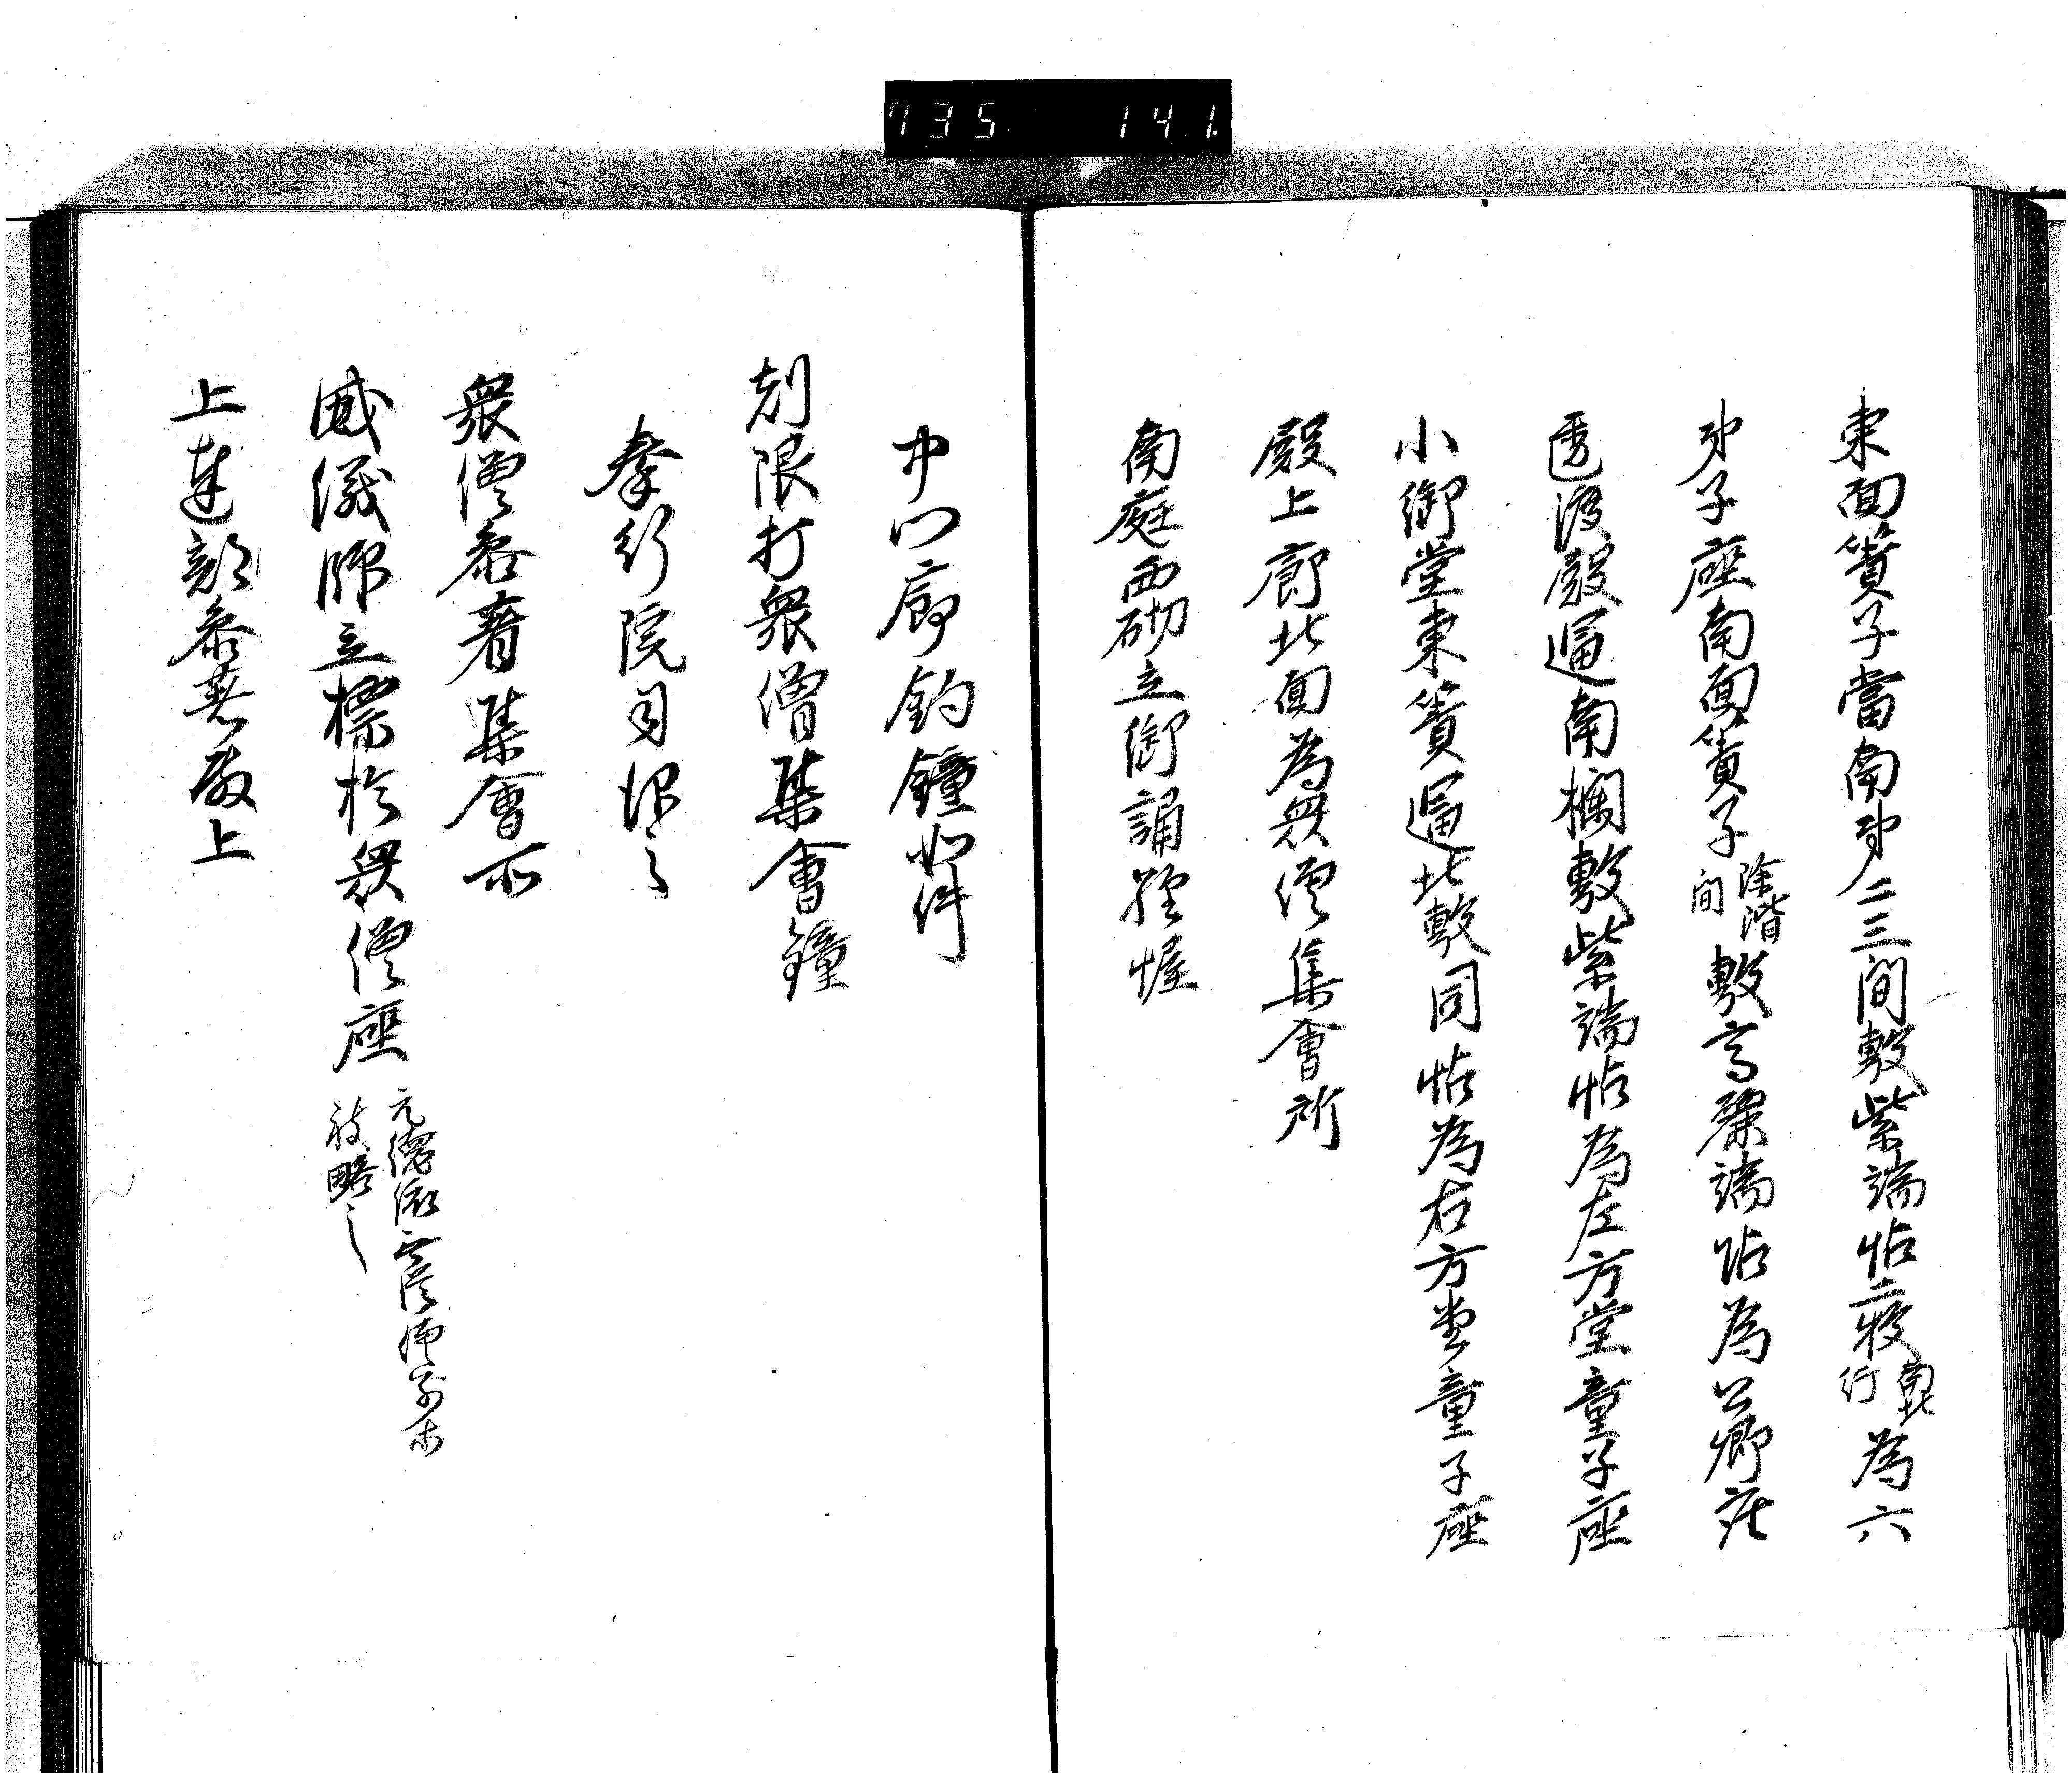 735 141
東面簀子當南第二三間敷紫端帖二枚南北行為六
弟子座南面簀子除階間敷高麗端帖為公卿座
透渡殿逼南欄敷紫端帖為左方堂童子座
小御堂東簀逼北敷同帖為右方堂童子座
殿上廊北面為衆僧集會所
南庭西砌立御誦経幄
中門廊釣鐘如件
刻限打衆僧集會鐘
奉行院司仰之
衆僧参着集會所
威儀師立標於衆僧座元徳依
被略之
上達部参着殿上